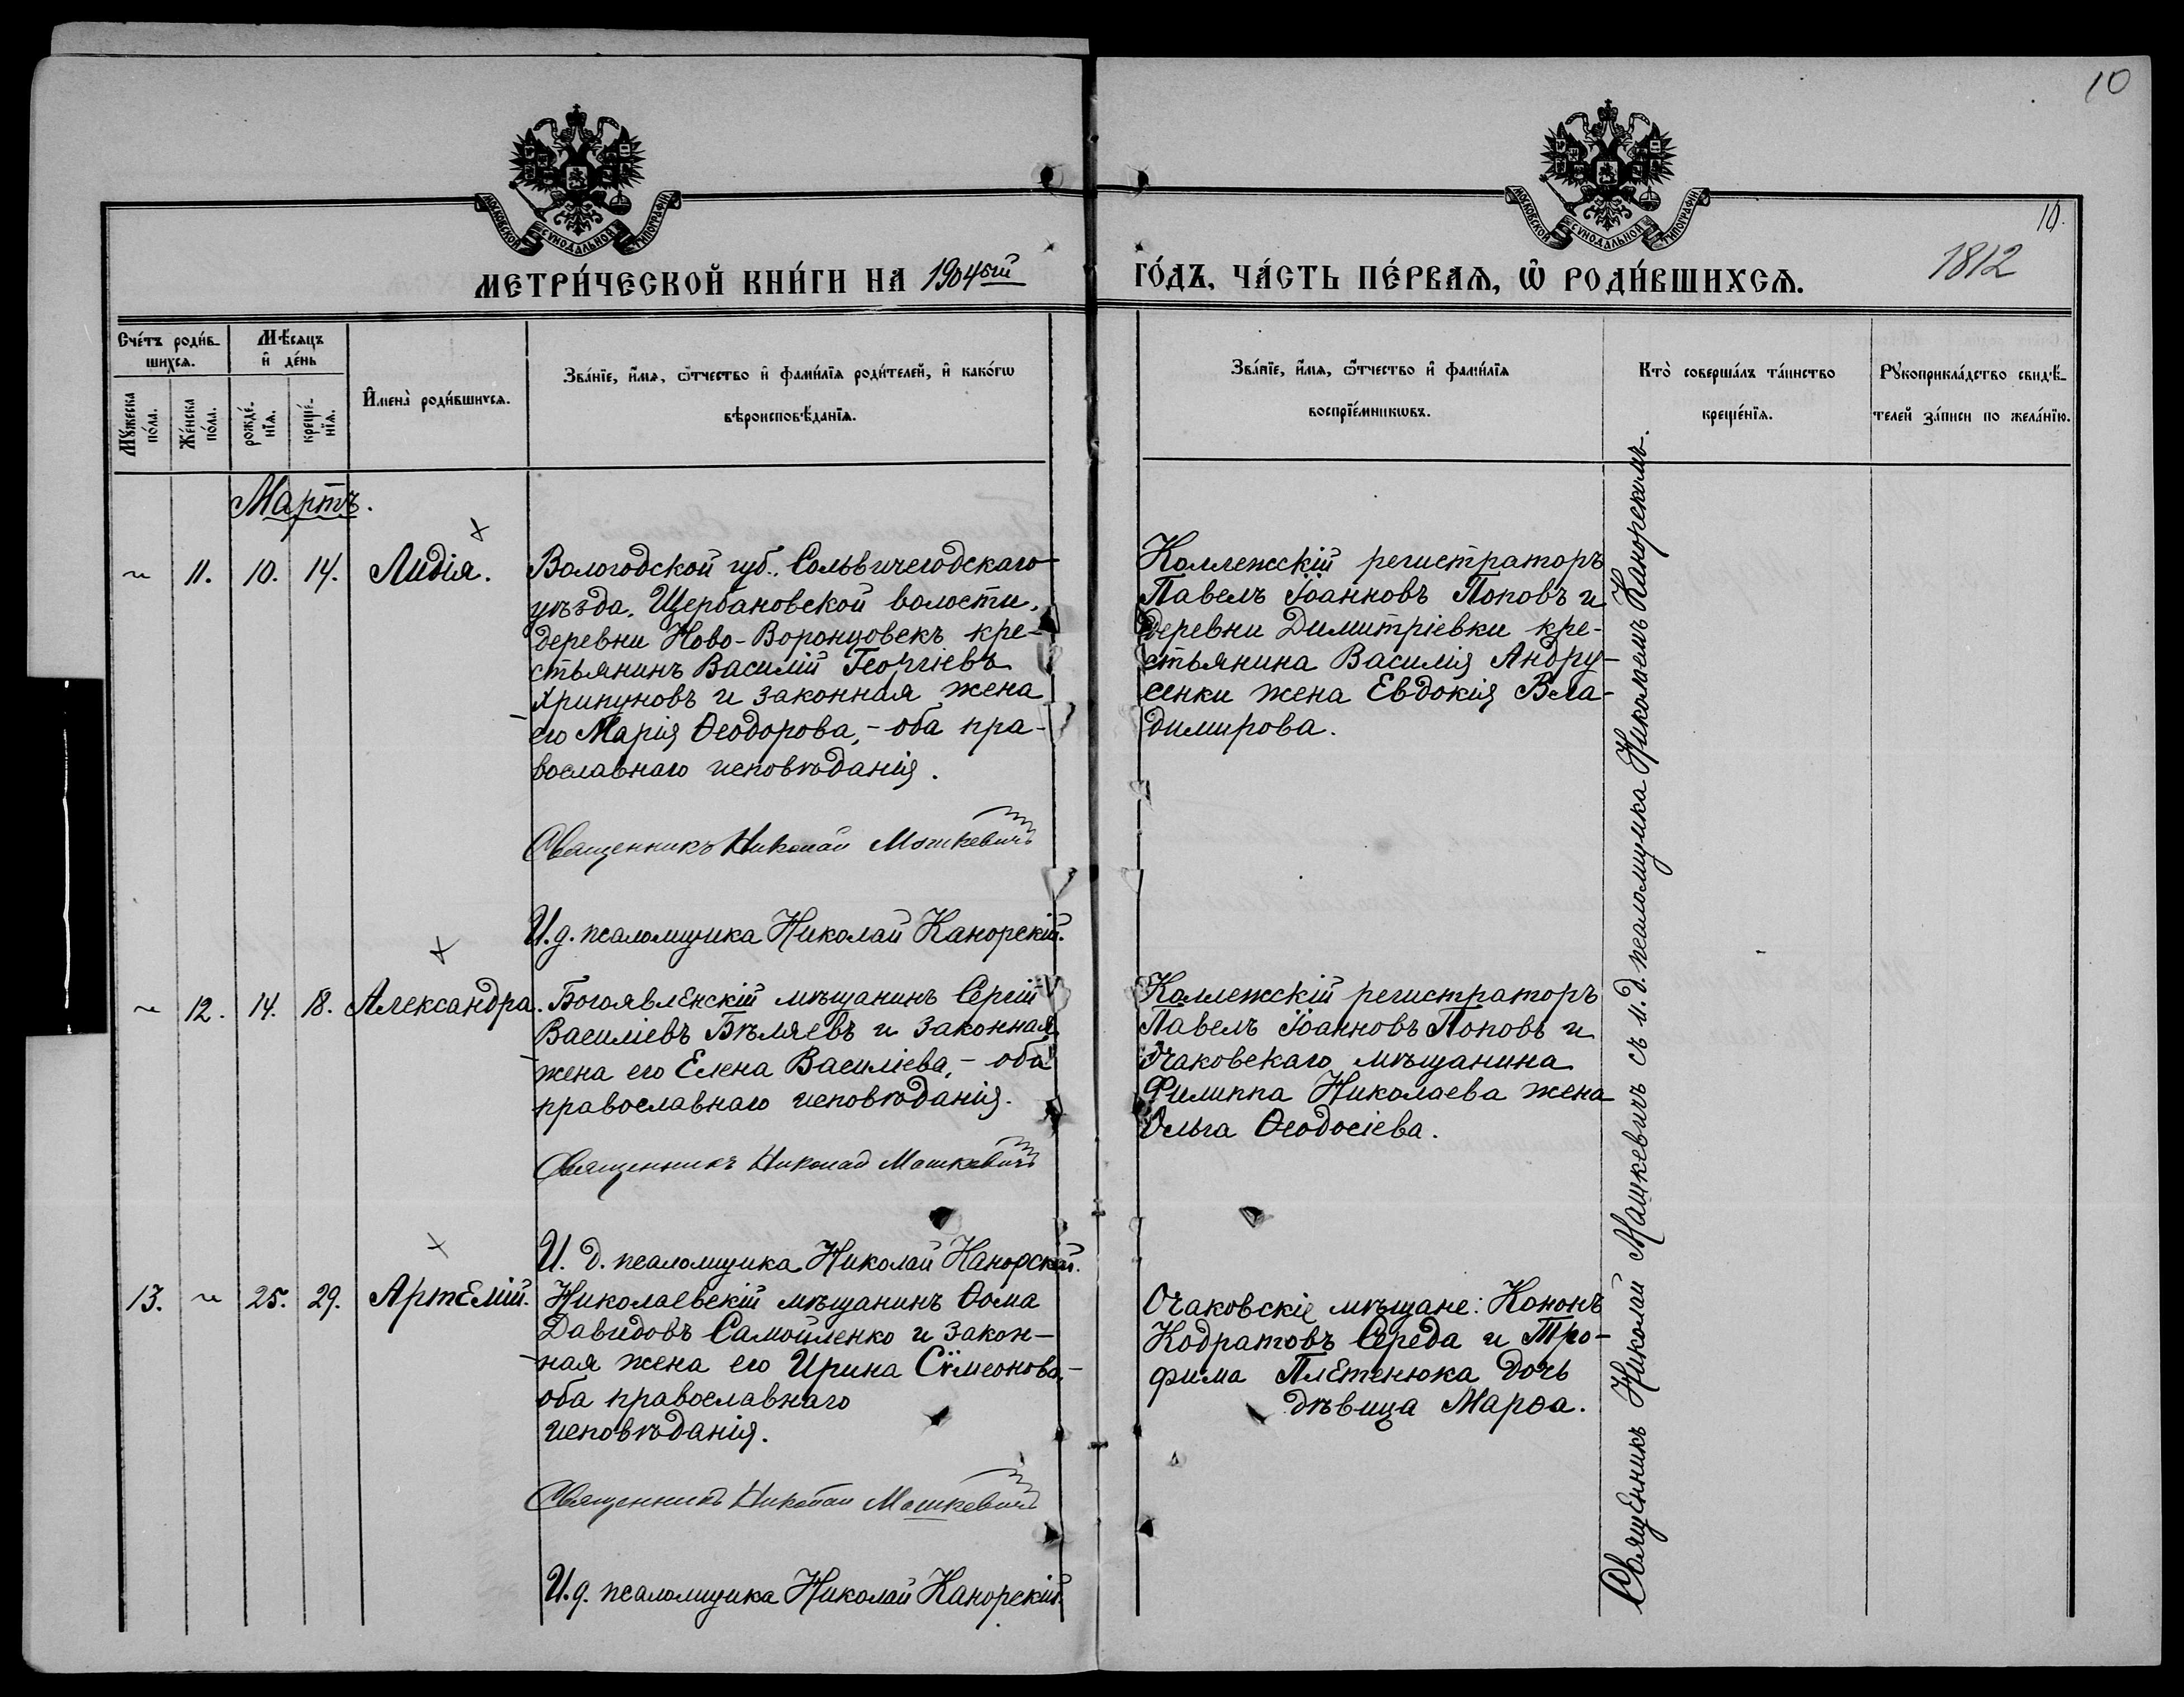 10
МОСКОВСКОЙ СУНОДАЛЬНОЙ ТИПОГРАФІИ
МОСКОВСКОЙ СУНОДАЛЬНОЙ ТИПОГРАФІИ
10.
1812
МЕТРИ́ЧЕСКОЙ КНИ́ГИ НА 1904ый ГО́ДЪ, ЧА́СТЬ ПЕ́РВАѦ, Ѡ҆ РОДИ́ВШИХСѦ.
Сче́тъ роди́в-
шихсѧ.
Мꙋ́жеска по́ла.
Же́нска по́ла.
Мѣ́сяцъ
и҆ де́нь
рожде́-нїѧ.
креще́-нїѧ.
И҆мена̀ роди́вшихсѧ.
Зва́нїе, и҆́мѧ, ѻ҆́тчество и҆ фами́лїѧ роди́телей, и҆ како́гѡ
вѣроисповѣ́данїѧ.
Зва́нїе, и҆́мѧ, ѻ҆́тчество и҆ фами́лїѧ
воспрїе́мникѡвъ.
Кто̀ соверша́лъ та́инство
креще́нїѧ.
Рꙋкоприкла́дство свидѣ́-
телей за́писи по жела́нїю.
Мартъ.
~ 11. 10. 14. Лидія.
Вологодской губ., Сольвичегодскаго
уѣзда, Щербановской волости,
деревни Ново-Воронцовскъ кре-
стьянинъ Василій Георгіевъ
Хрипуновъ и законная жена
его Марія Ѳеодорова, - оба пра-
вославнаго исповѣданія.
Священникъ Николай Машкевичъ
И.д. псаломщика Николай Канорскій.
Коллежскій регистраторъ
Павелъ Іоанновъ Поповъ и
деревни Димитріевки кре-
стьянина Василія Андру-
сенки жена Евдокія Вла-
димирова.
~ 12. 14. 18. Александра.
Богоявленскій мѣщанинъ Сергій
Василіевъ Бѣляевъ и законная
жена его Елена Василіева, - оба
православнаго исповѣданія.
Священникъ Николай Машкевичъ
И. д. псаломщика Николай Канорскій.
Коллежскій регистраторъ
Павелъ Іоанновъ Поповъ и
Очаковскаго мѣщанина
Филиппа Николаева жена
Ольга Ѳеодосіева.
13. ~ 25. 29. Артемій.
Николаевскій мѣщанинъ Ѳома
Давидовъ Самойленко и закон-
ная жена его Ирина Сѵмеонова, -
оба православнаго
исповѣданія.
Священникъ Николай Машкевичъ
И.д. псаломщика Николай Канорскій.
Очаковскіе мѣщане: Кононъ
Кодратовъ Середа и Тро-
фима Плетенюка дочь
дѣвица Марѳа.
Священникъ Николай Машкевичъ съ и.д. псаломщика Николаемъ Канорскимъ.